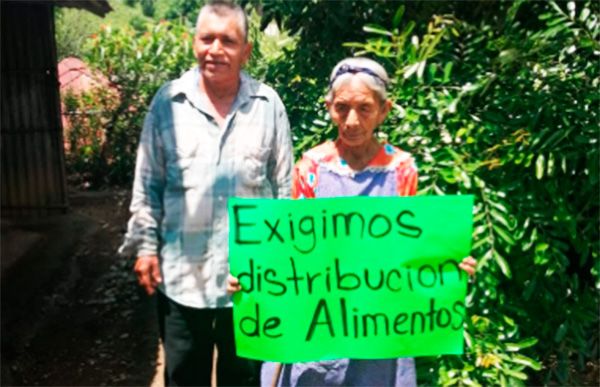 Exigimos
distribucion
de Alimentos